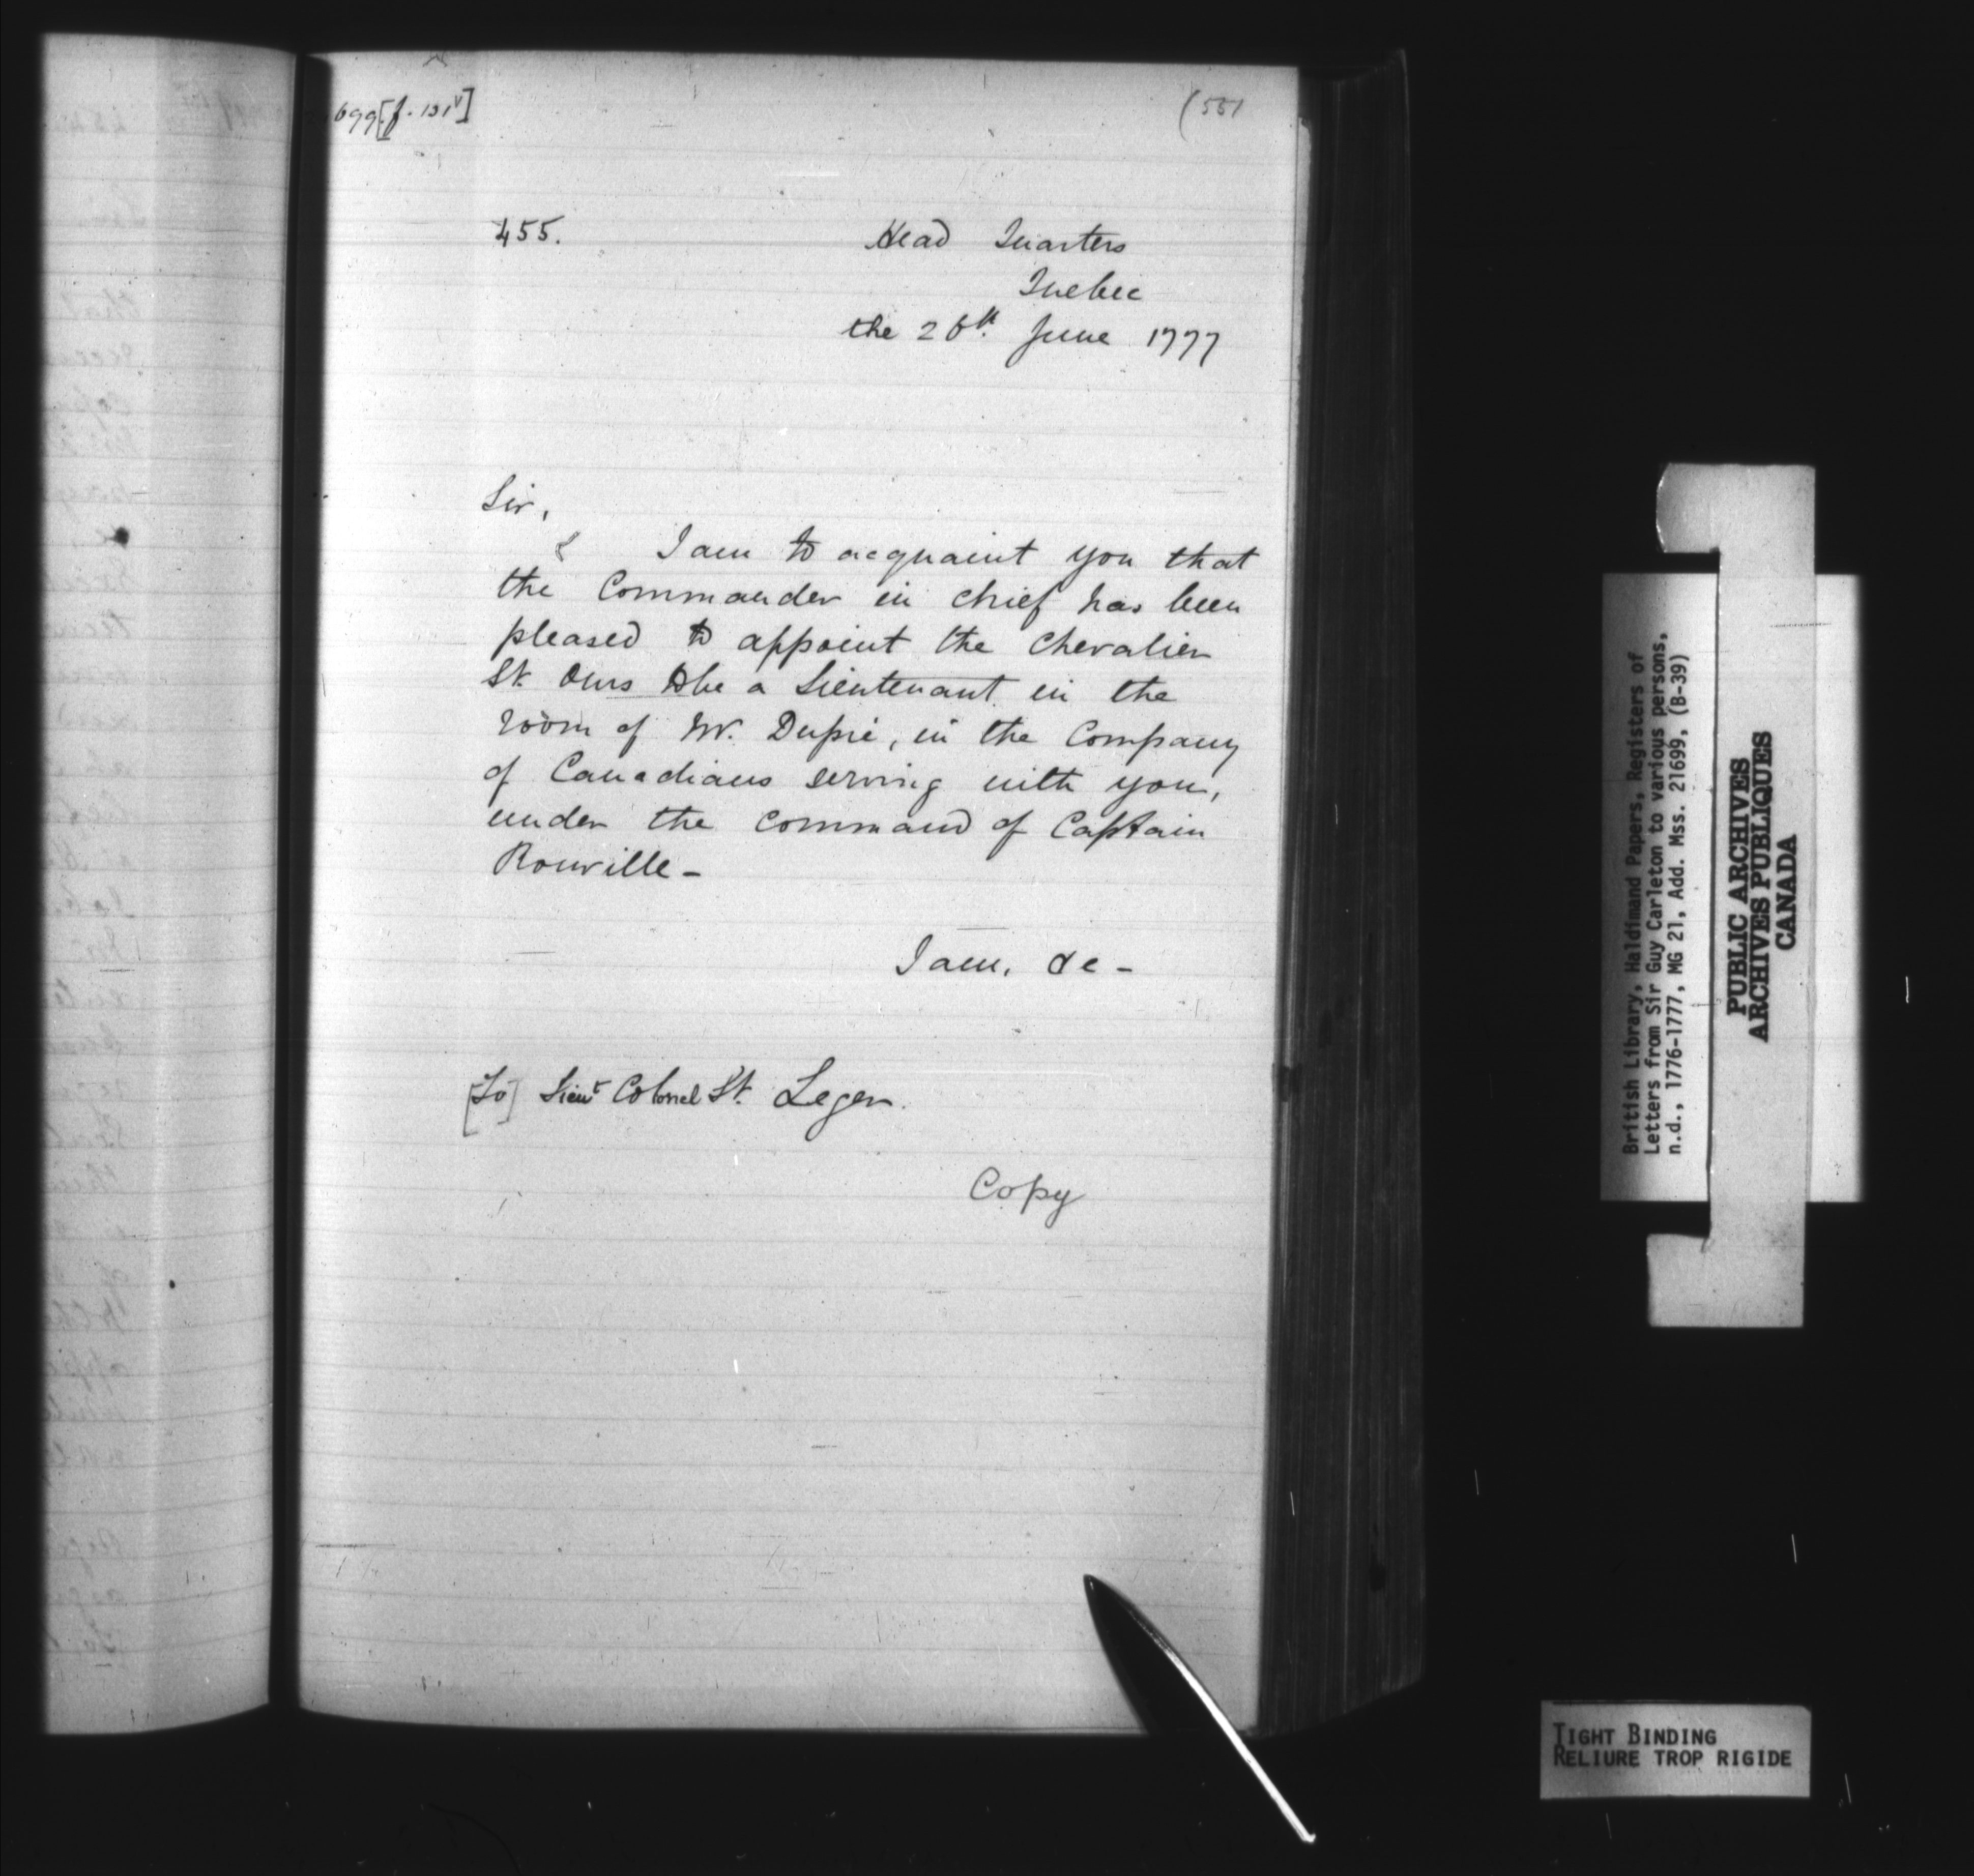 699 [f. 131v]
(551
455.
Head Quarters
Quebec
the 26th. June 1777
Sir,
I am to acquaint you that
the Commander in chief has been
pleased to appoint the Chevalier
St. Ours to be a Lieutenant in the
room of Mr. Dupré, in the Company
of Canadians serving with you,
under the command of Captain
Rouville -
I am, &c -
[To] Lieut Colonel St. Leger.
Copy
British Library, Haldimand Papers, Registers of
Letters from Sir Guy Carleton to various persons,
n.d., 1776-1777, MG 21, Add. Mss. 21699, (B-39)
PUBLIC ARCHIVES
ARCHIVES PUBLIQUES
CANADA
TIGHT BINDING
RELIURE TROP RIGIDE